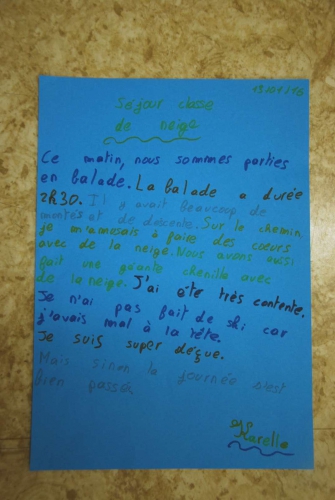 13/01/16
Séjour classe
de neige
Ce matin, nous sommes parties
en balade. La balade a durée
2h30. Il y avait beaucoup de
montés et de descente. Sur le chemin,
je m'amusais à faire des coeurs
avec de la neige. Nous avons aussi
fait une géante chenille avec
de la neige. J'ai été très contente.
Je n'ai pas fait de ski car
j'avais mal à la tête.
Je suis super déçue.
Mais sinon la journée s'est
bien passée.
Karella